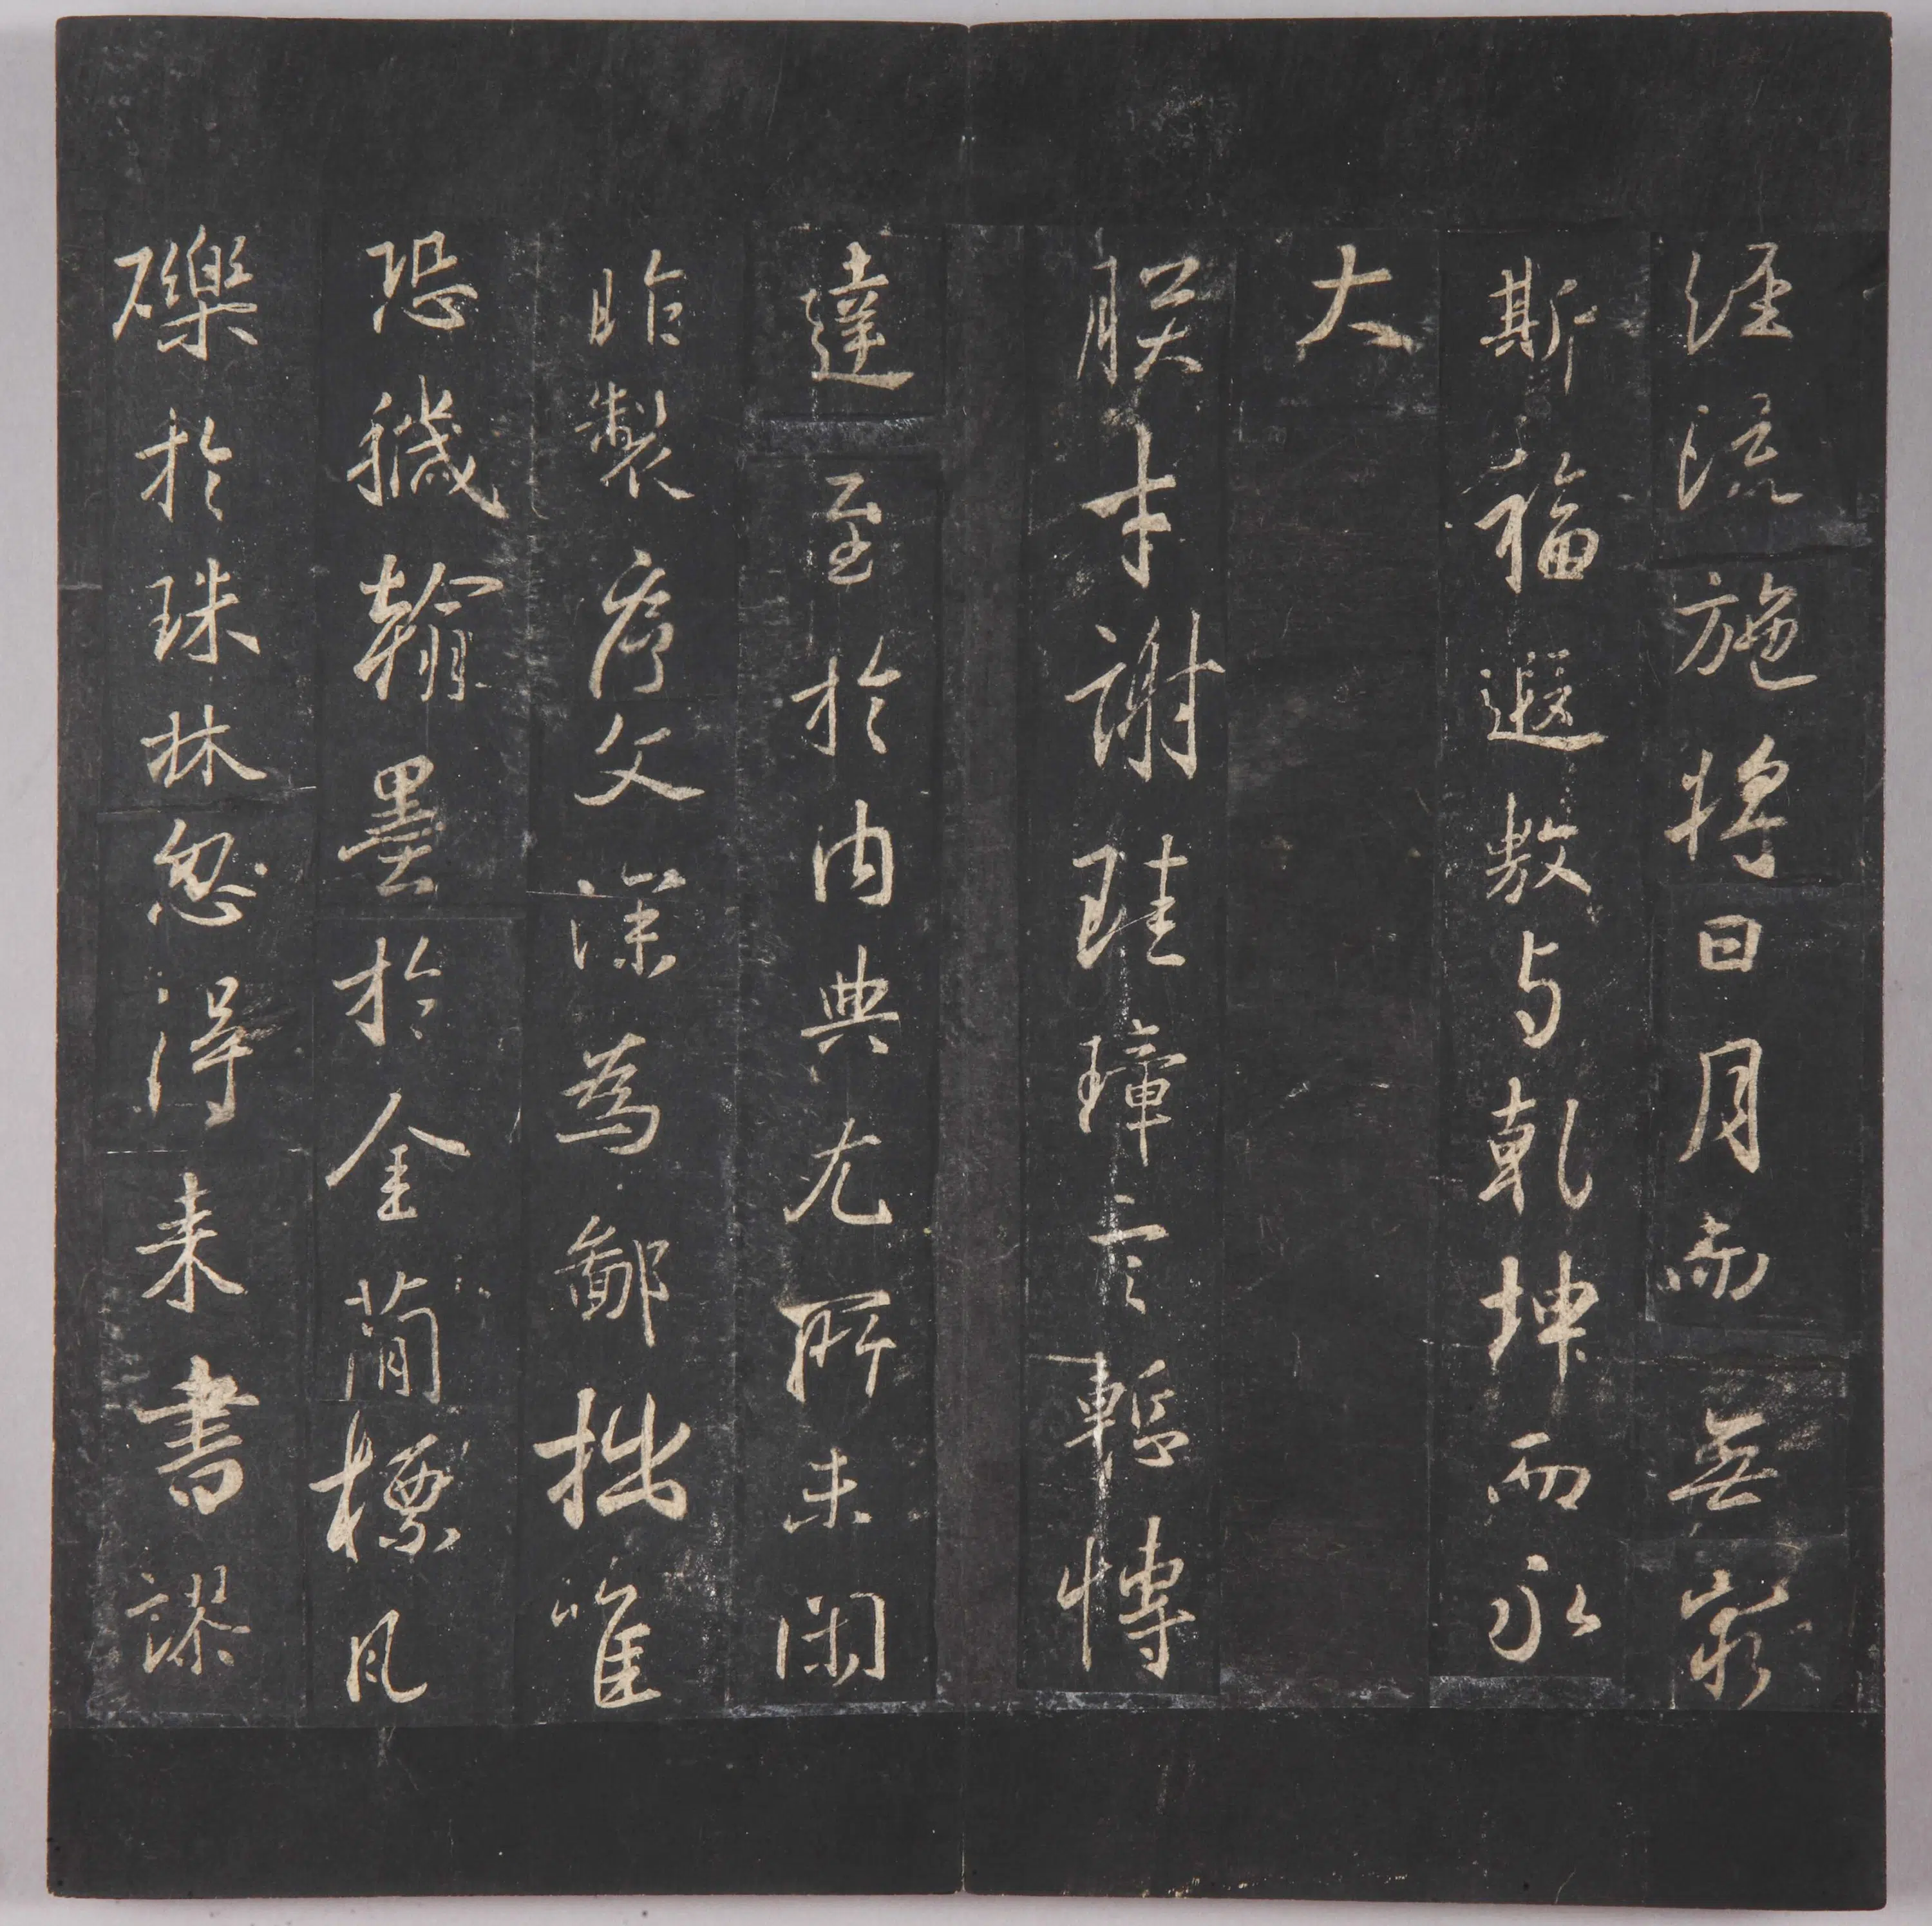 經流施將日月而無窮
斯福遐敷与乾坤而永
大
朕才謝珪璋言慙博
達至於内典尤所未閑
昨製序文深為鄙拙唯
恐穢翰墨於金簡標瓦
礫於珠林忽得来書謬